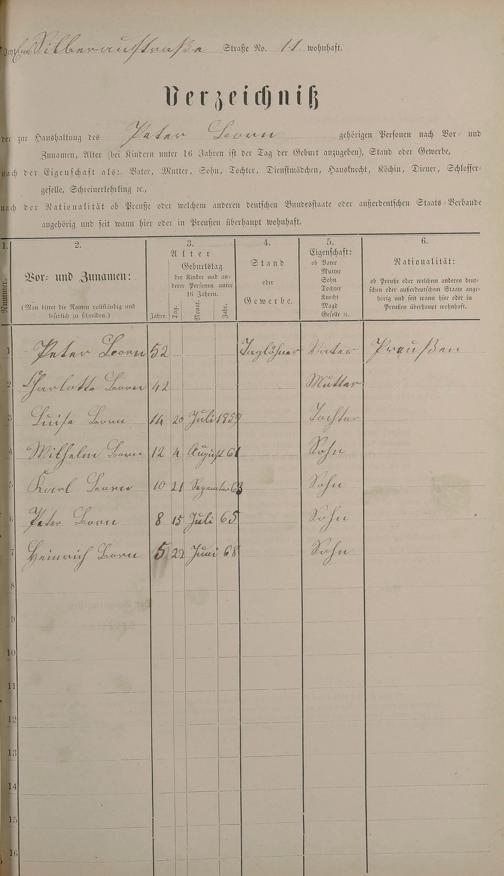 Silberaustraße Straße No. 11 wohnhaft.
Verzeichniß
der zur Haushaltung des Peter Born gehörigen Personen nach Vor- und
Zunamen, Alter (bei Kindern unter 16 Jahren ist der Tag der Geburt anzugeben), Stand oder Gewerbe,
nach der Eigenschaft als: Vater, Mutter, Sohn, Tochter, Dienstmädchen, Hausknecht, Köchin, Diener, Schlosser-
geselle, Schreinerlehrling ec.,
nach der Nationalität ob Preuße oder welchem anderen deutschen Bundesstaate oder außerdeutschen Staats-Verbande
angehörig und seit wann hier oder in Preußen überhaupt wohnhaft.
1. 2. 3. 4. 5. 6.
Nummer.
Vor- und Zunamen:
(Man bittet die Namen vollständig und
leserlich zu schreiben.)
Alter
Geburtstag
der Kinder und an-
derer Personen unter
16 Jahren.
Jahre. Tag. Monat. Jahr.
Stand
oder
Gewerbe.
Eigenschaft:
ob Vater
Mutter
Sohn
Tochter
Knecht
Magd
Geselle u.
Nationalität:
ob Preuße oder welchem anderen deut-
schen oder außerdeutschen Staate ange-
hörig und seit wann hier oder in
Preußen überhaupt wohnhaft.
1 Peter Born 52 Taglöhner Vater Preußen
2 Charlotte Born 42 Mutter
3 Luise Born 14 20 Juli 1859 Tochter
4 Wilhelm Born 12 4 August 61 Sohn
5 Karl Born 10 21 September 63 Sohn
6 Peter Born 8 15 Juli 65 Sohn
7 Heinrich Born 5 22 Juni 68 Sohn
8
9
10
11
12
13
14
15
16